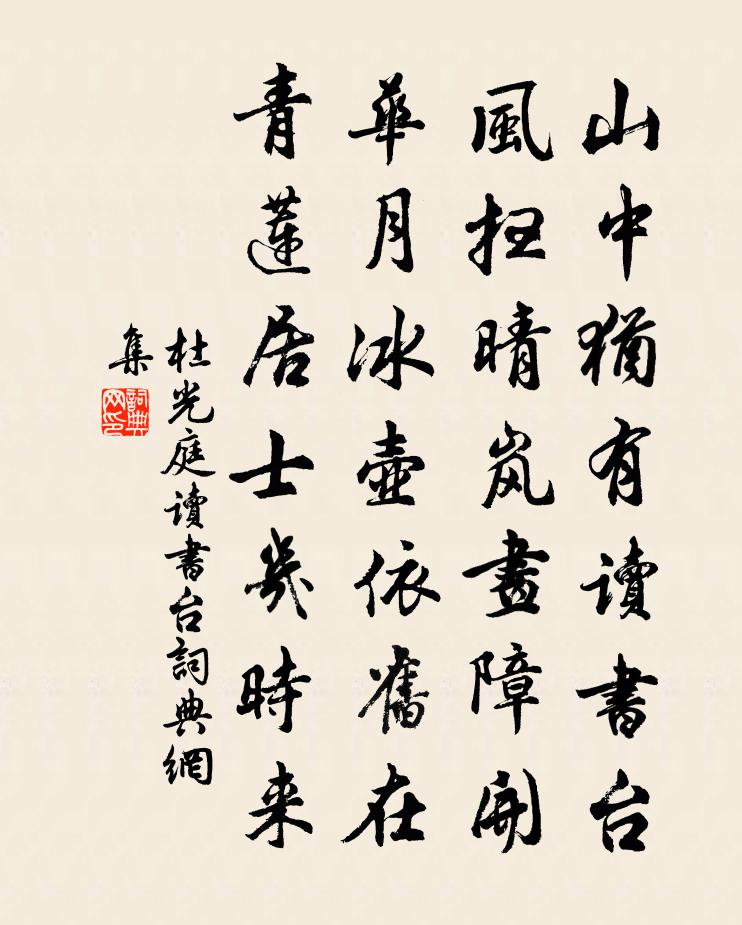 山中猶有讀書台
風掃晴岚畫障開
華月冰壺依舊在
青蓮居士幾時来
杜光庭讀書台詞典網
集
詞典
网印